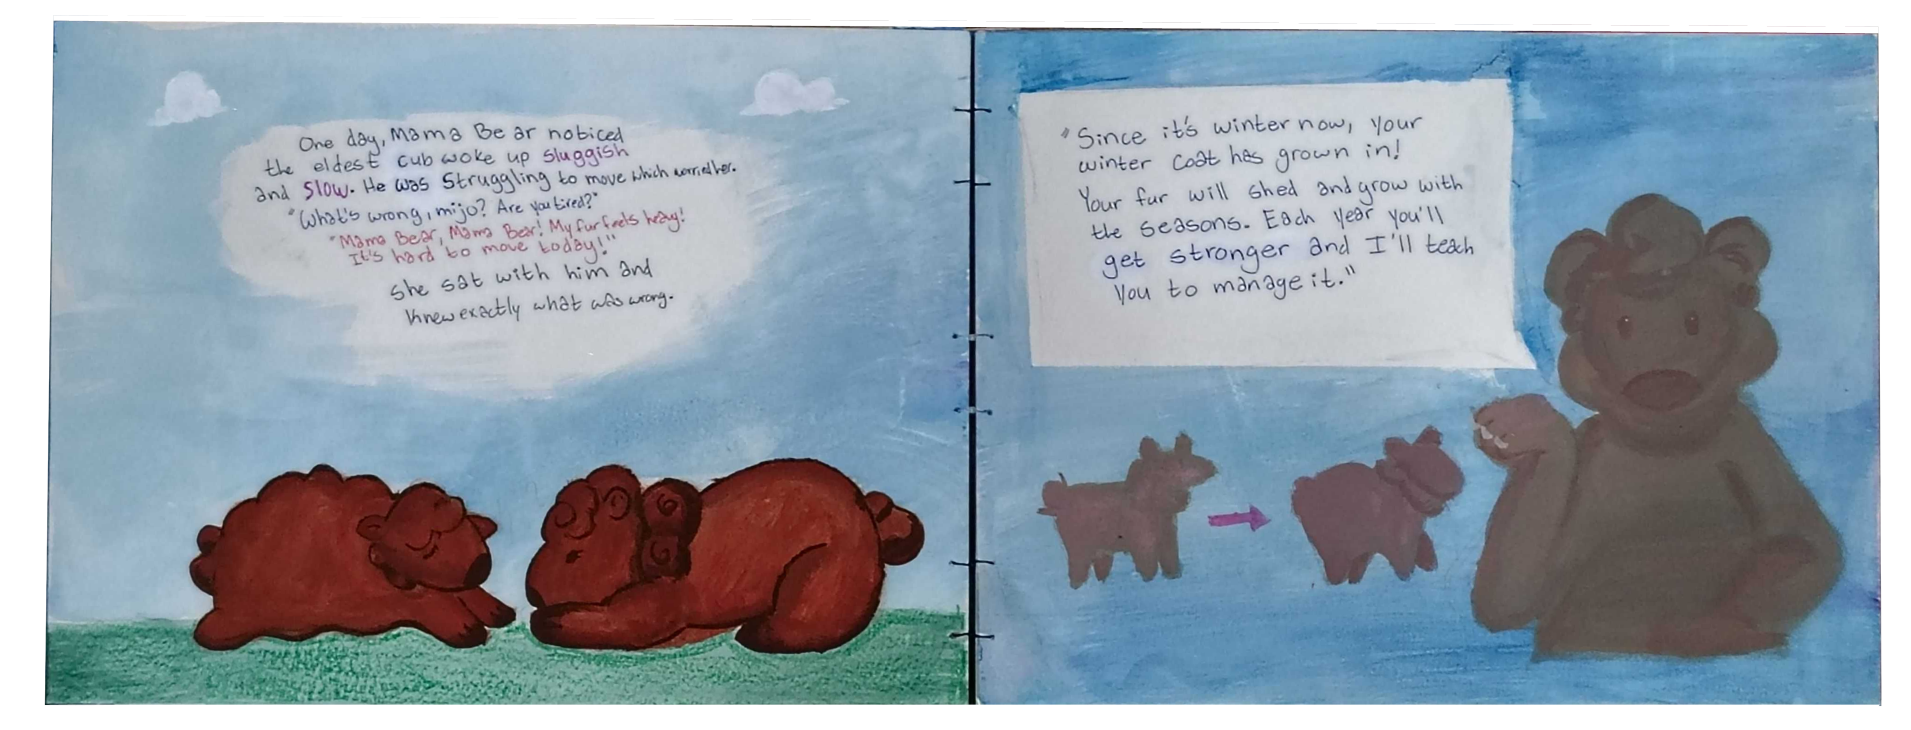 One day, Mama Bear noticed
the eldest cub woke up sluggish
and slow. He was struggling to move which worried her.
"What's wrong, mijo? Are you tired?"
"Mama Bear, Mama Bear! My fur feels heavy!
It's hard to move today!"
She sat with him and
knew exactly what was wrong.
"Since it's winter now, your
winter coat has grown in!
Your fur will shed and grow with
the seasons. Each year you'll
get stronger and I'll teach
you to manage it."